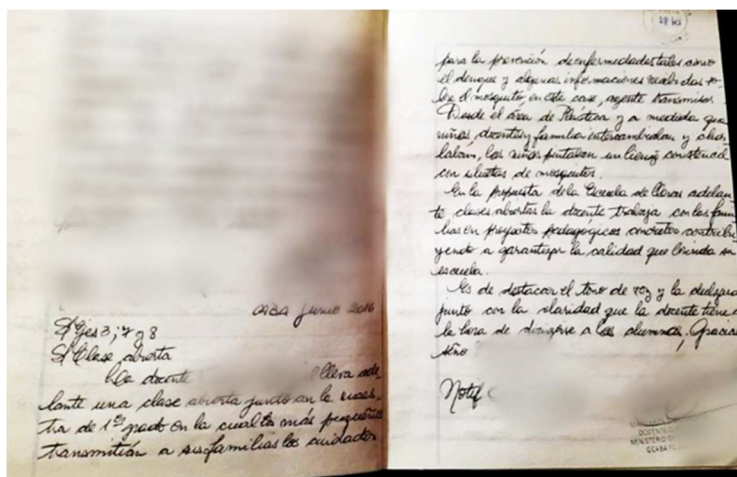 CABA Junio 2016
S/ Ejes 3; 7 y 8
S/ Clase abierta
La docente lleva ade-
lante una clase abierta junto con la maes-
tra de 1er grado en la cual los más pequeños
transmitían a sus familias los cuidados
para la prevención de enfermedades tales como
el dengue y algunas informaciones recibidas so-
bre el mosquito, en este caso, agente transmisor.
Desde el área de Plástica y a medida que
niños, docentes y familia intercambiaban y char-
laban, los niños pintaban un lienzo
con siluetas de mosquitos.
En la propuesta de la Escuela de llevar adelan-
te clases abiertas la docente trabaja con las fami-
lias en proyectos pedagógicos concretos contribu-
yendo a garantizar la calidad que brinda su
escuela.
Es de destacar el tono de voz y la dulzura
junto con la claridad que la docente tiene a
la hora de dirigirse a los alumnos. Gracias
seño
Notif
DOCENTE
MINISTERIO
GCABA